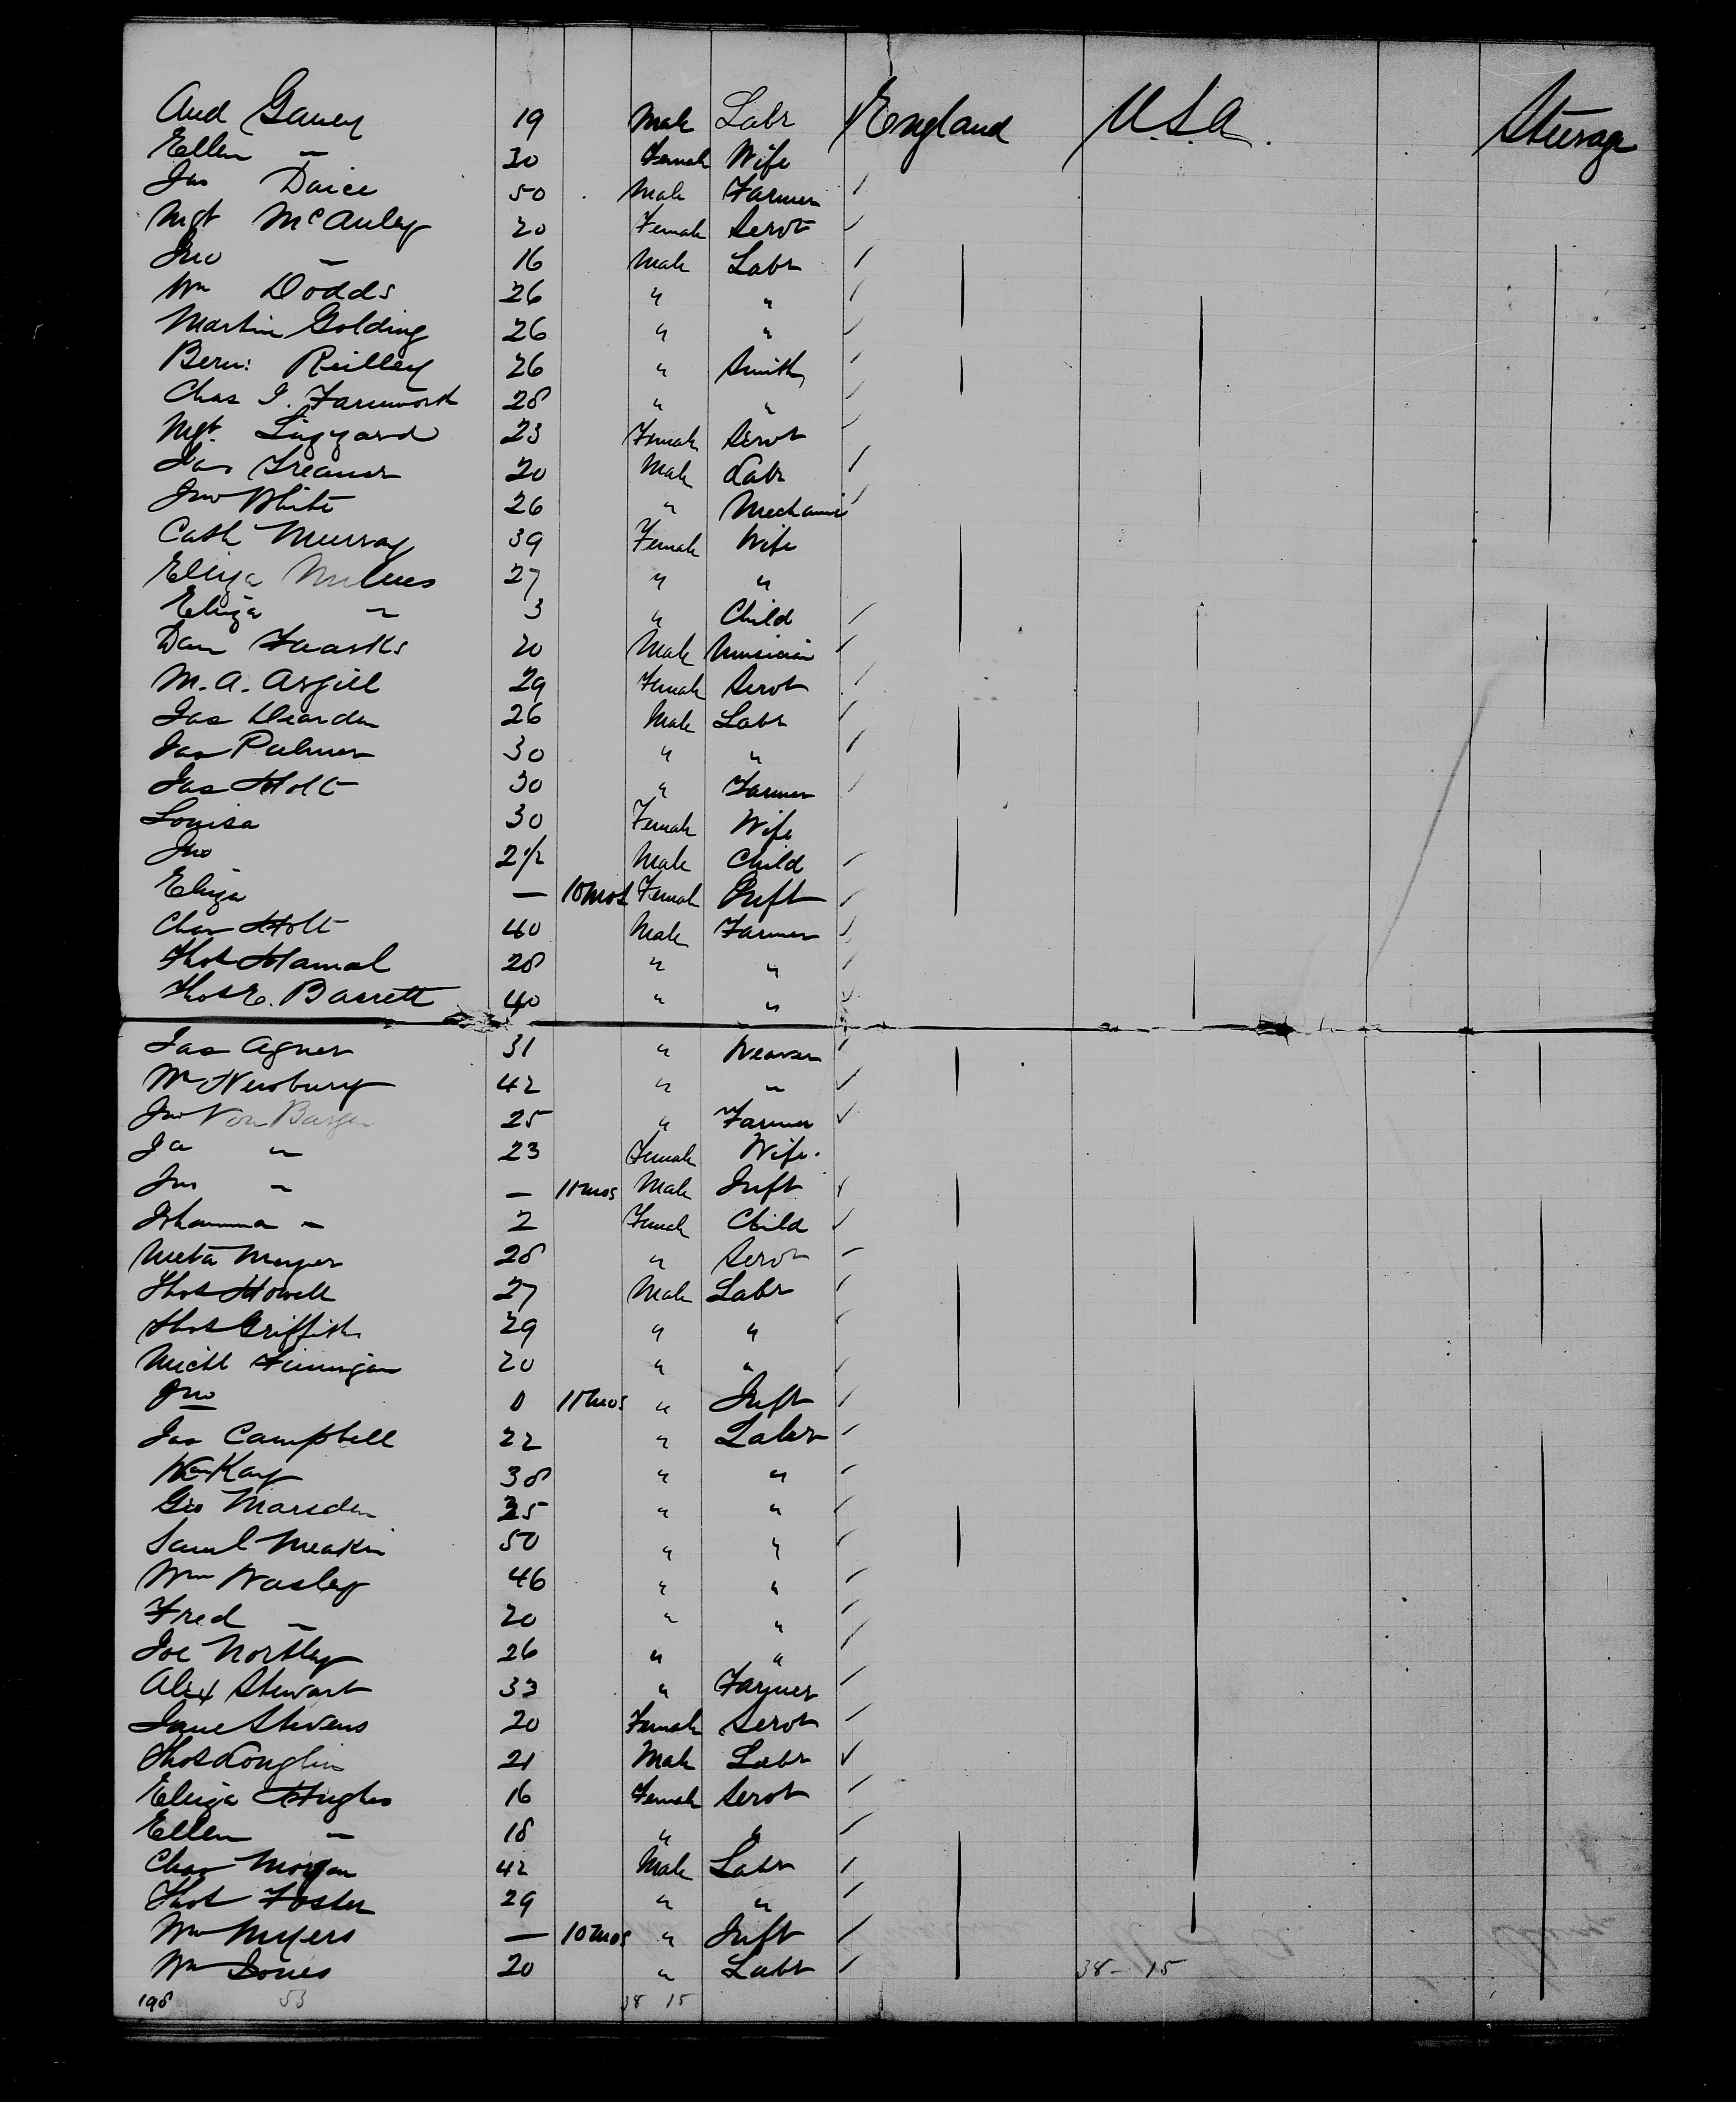 And Gavey 19 Male Labr England U.S.A. Steerage
Ellen " 30 Female Wife
Jas Daice 50 Male Farmer
Mgt McAuley 20 Female Servt
Jno " 16 Male Labr
Wm Dodds 26 " "
Martin Golding 26 " "
Bern: Reilley 26 " Smith
Chas I. Farnworth 28 " "
Mgt. Liggard 23 Female Servt
Jas Treanor 20 Male Labr
Jno White 26 " Mechanic
Cath Murray 39 Female Wife
Eliza Milnes 27 " "
Eliza " 3 " Child
Dan 20 Male Musician
M. A. Argill 29 Female Servt
Jas Dearden 26 Male Labr
Jas Palmer 30 " "
Jas Holt 30 " Farmer
Louisa 30 Female Wife
Jno 2 1/2 Male Child
Eliza — 10 mos Female Inft
Chas Holt 40 Male Farmer
Thos Hamal 28 " "
Thos E. Barrett 40 " "
Jas Agner 31 " Weaver
Wm Newbury 42 " "
Jno Von Bargen 25 " Farmer
" 23 Female Wife.
Jno " — 11 mos Male Inft
Johanna " 2 Female Child
Meta Meyer 28 " Servt
Thos Howell 27 Male Labr
Thos Griffith 29 " "
Michl Finnigan 20 " "
Jno 0 11 mos " Inft
Jas Campbell 22 " Labr
Wm Kay 38 " "
Geo Marsden 35 " "
Saml Meakin 50 " "
Wm Wasley 46 " "
Fred " 20 " "
Joe Northey 26 " "
Alex Stewart 33 " Farmer
Jane Stevens 20 Female Servt
Thos Loughlin 21 Male Labr
Eliza Hughes 16 Female Servt
Ellen " 18 " "
Chas Morgan 42 Male Labr
Thos Foster 29 " "
Wm Myers — 10 mos " Inft
Wm Jones 20 " Labr 38 - 15
198 53 38 15